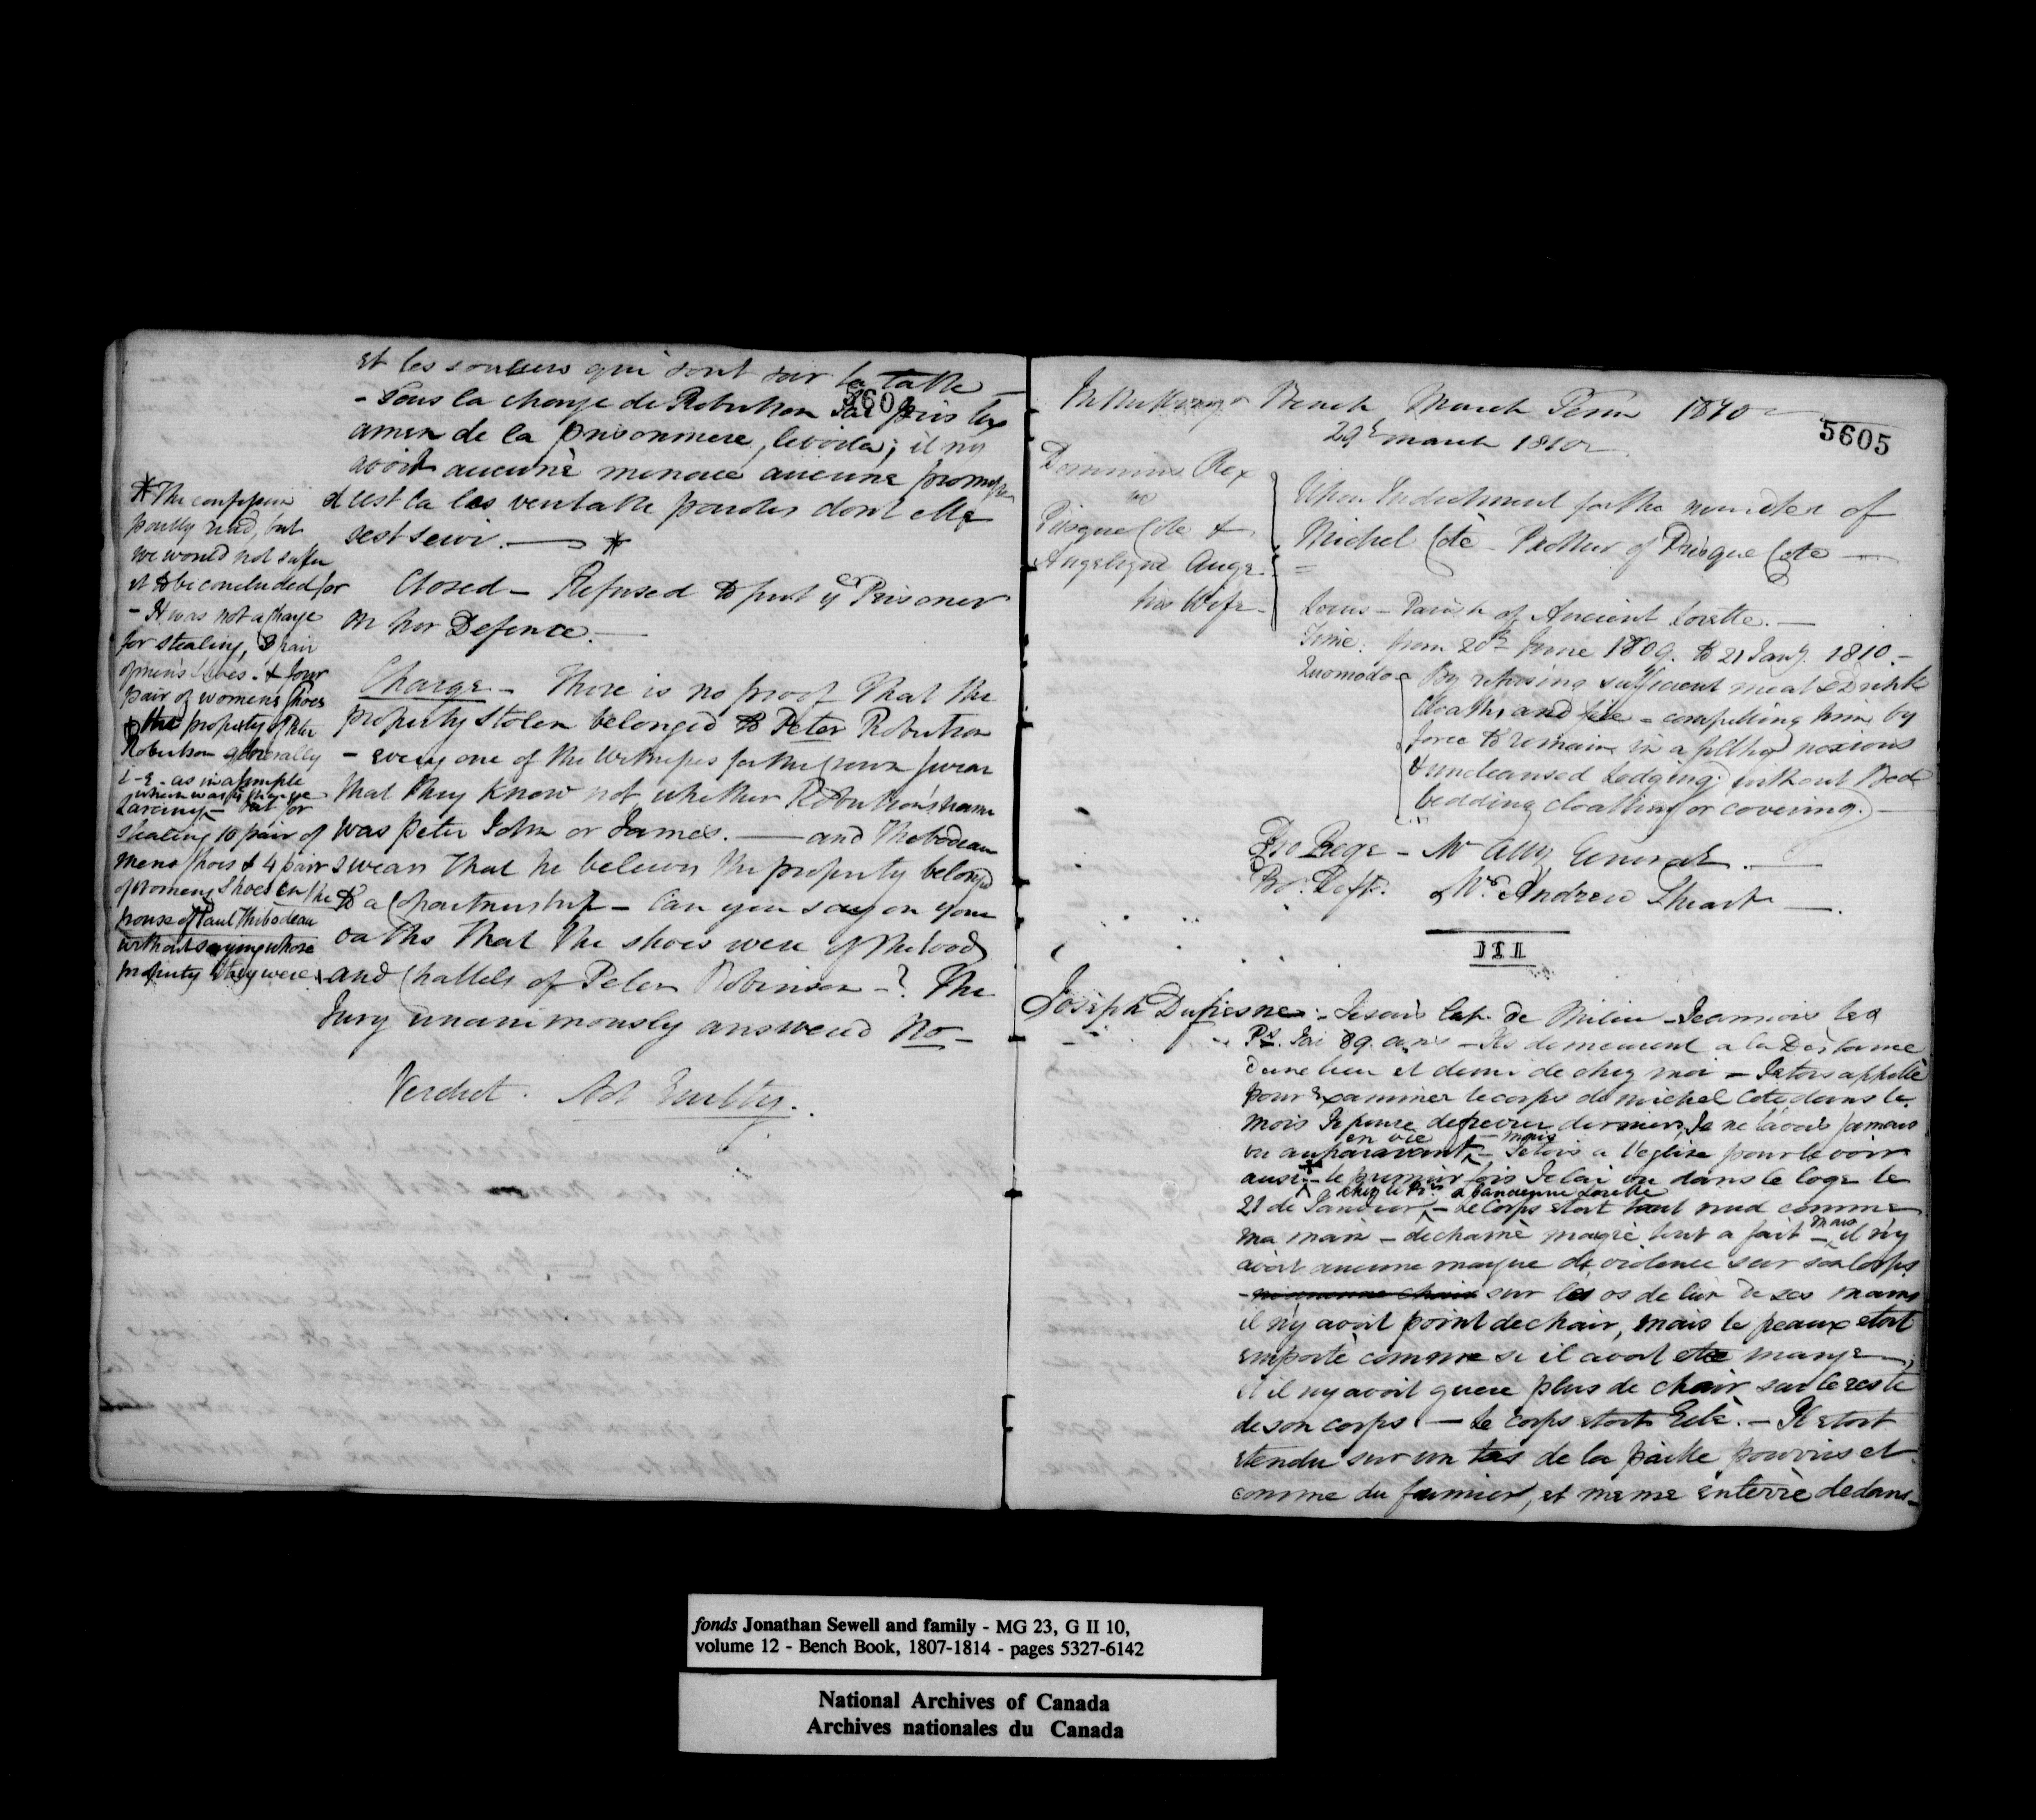 et les souliers qui sont sur la table —
5604
- Sous la charge de Robertson J'ai pris lex
amen de la prisonniere, levoila; il ny
avoit aucune menace aucune promesse
c'est la les veritable paroles dont elle
sest servi. — *
Closed — Refused to put ye Prisoner
on her Defence. —
Charge — There is no proof that the
property stolen belonged to Peter Robertson
— every one of the Witnesses for the Crown swear
that they know not whether Robertson's name
was Peter John or James. — and Thibodeau
swears that he believes the property belonged
to a Copartnership — Can you say on your
oaths that the shoes were of the Goods
and Chattels of Peter Robinson —? The
Jury unanimously answered No —
Verdict. Not Guilty.
* The confession
partly read, but
we would not suffer
it to be concluded for
- It was not a charge
for stealing, 10 pair
of men's shoes - & four
pair of womens shoes
the property of Peter
Robertson generally
i-e- as in a simple
Larceny — but for
stealing 10 pair of
mens shoes & 4 pair
of womens shoes in the
house of Paul Thibodeau
without saying whose
property they were.
In the Kings Bench March Term 1810
29th march 1810
5605
Dominus Rex
vs
Prisque Cote &
Angelique Auge
his Wife —
Upon Indictment for the murder of
Michel Cotè — Brother of Prisque Cote —
Locus — Parish of Ancient Lorette. —
Time: from 20th June 1809. to 21 Jany. 1810. —
Quomodo - By refusing sufficient meat & Drink
Cloaths and fire - compelling him by
force to remain in a filthy noxious
& uncleansed Lodging without Bed
bedding cloathing or covering. —
Pro Rege — Mr Atty General. —
Pro. Deft. Mr. Andrew Stuart —.
III
Joseph Dufresne. — Je suis Cap. de Milice — Je connois les
Prs. J'ai 89. ans — Ils demeurent a la Distance
d'une lieu et demi de chez moi — J'etois appellè
pour examiner le corps de michel Cote dans le
mois Je pense de fevrier dernier, Je ne l'avois jamais
vu auparavant en vie — mais J'etois a l'eglise pour le voir
aussi * — le premier fois Je lai vu dans le loge le
21 de Janvier chez le Prs. a l'ancienne Lorette — Le Corps etoit tout nud comme
ma main — dechainè maigre tout a fait — mais il n'y
avoit aucune marque de violence sur son Corps
— sur les os de lun de ses mains
il n'y avoit point de chair, mais le peaux etoit
emportè comme si il avoit ete mangè,
et il ny avoit guere plus de chair sur le reste
de son corps. — Le corps etoit Gelè. — Il etoit
etendu sur un tas de la paille pourris et
comme du fumier, et meme enterrè dedans —
fonds Jonathan Sewell and family - MG 23, G II 10,
volume 12 - Bench Book, 1807-1814 - pages 5327-6142
National Archives of Canada
Archives nationales du Canada